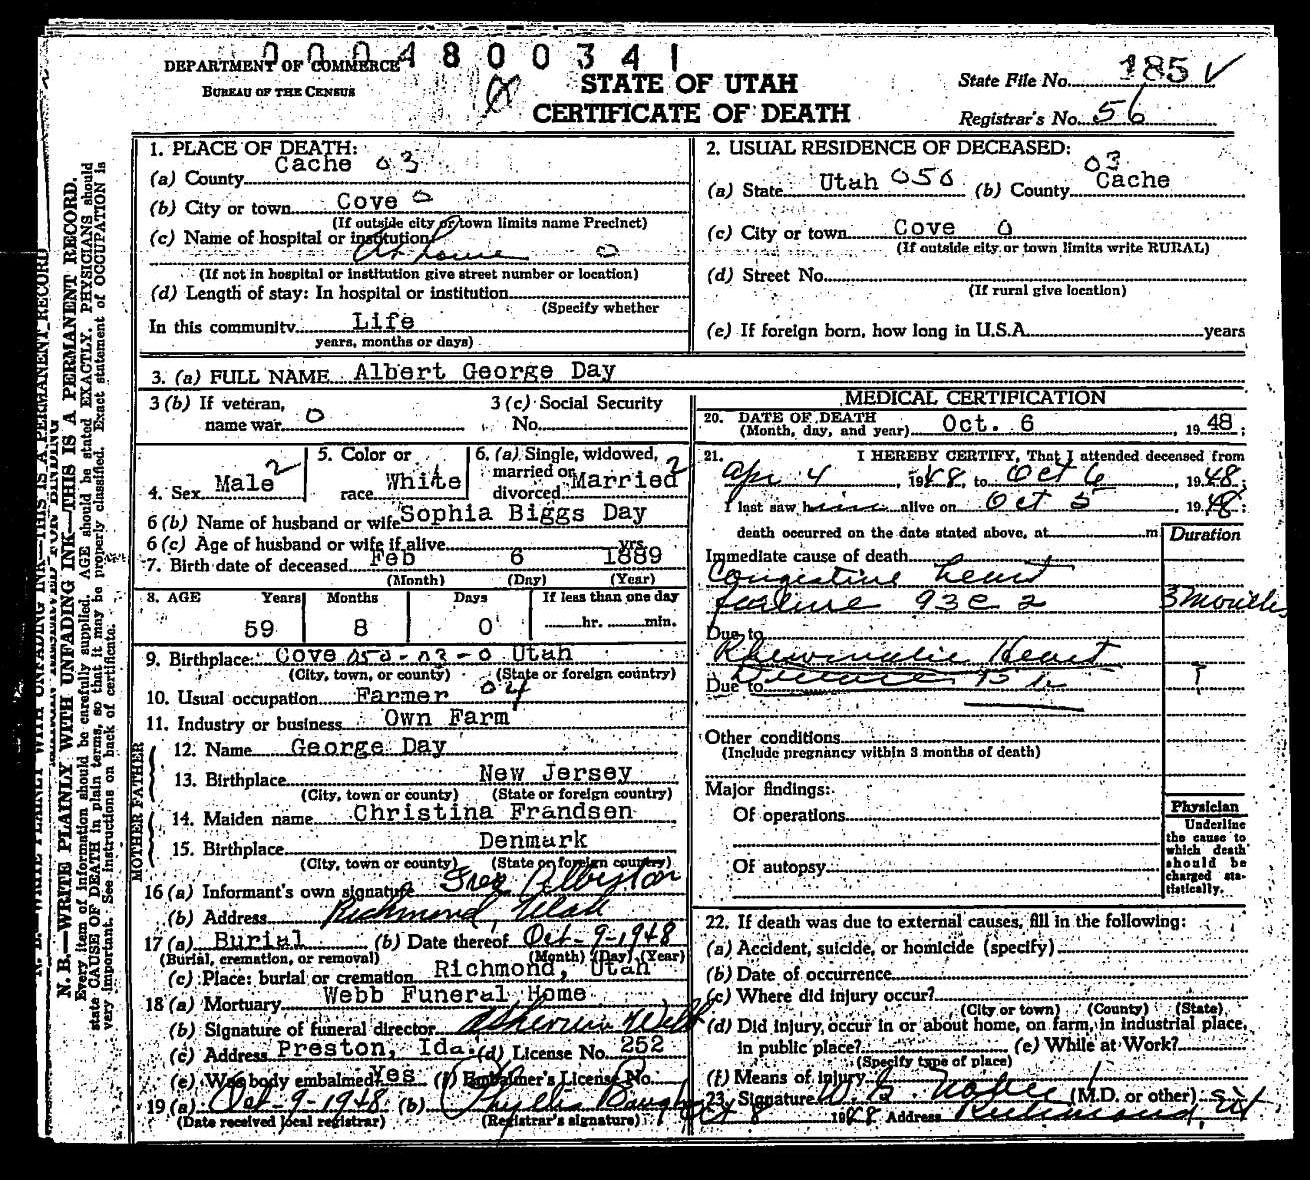 0004800341
DEPARTMENT OF COMMERCE
BUREAU OF THE CENSUS
STATE OF UTAH
CERTIFICATE OF DEATH
State File No. 185 ✓
Registrar's No. 56
N. B.—WRITE PLAINLY WITH UNFADING INK—THIS IS A PERMANENT RECORD.
Every item of information should be carefully supplied. AGE should be stated EXACTLY. PHYSICIANS should
state CAUSE OF DEATH in plain terms, so that it may be properly classified. Exact statement of OCCUPATION is
very important. See instructions on back of certificate.
1. PLACE OF DEATH:
(a) County Cache 03
(b) City or town Cove 0
(If outside city or town limits name Precinct)
(c) Name of hospital or institution
At home 0
(If not in hospital or institution give street number or location)
(d) Length of stay: In hospital or institution
(Specify whether
In this community Life
years, months or days)
2. USUAL RESIDENCE OF DECEASED:
(a) State Utah 050 (b) County 03 Cache
(c) City or town Cove 0
(If outside city or town limits write RURAL)
(d) Street No.
(If rural give location)
(e) If foreign born, how long in U.S.A. years
3. (a) FULL NAME Albert George Day
3 (b) If veteran,
name war 0
3 (c) Social Security
No.
4. Sex Male 2
5. Color or
race White
6. (a) Single, widowed,
married or
divorced Married 2
6 (b) Name of husband or wife Sophia Biggs Day
6 (c) Age of husband or wife if alive yrs.
7. Birth date of deceased Feb 6 1889
(Month) (Day) (Year)
8. AGE Years Months Days If less than one day
59 8 0 hr. min.
9. Birthplace Cove 050-03-0 Utah
(City, town, or county) (State or foreign country)
10. Usual occupation Farmer 04
11. Industry or business Own Farm
FATHER
12. Name George Day
13. Birthplace New Jersey
(City, town or county) (State or foreign country)
MOTHER
14. Maiden name Christina Frandsen
15. Birthplace Denmark
(City, town or county) (State or foreign country)
16 (a) Informant's own signature
(b) Address Richmond, Utah
17 (a) Burial (b) Date thereof Oct-9-1948
(Burial, cremation, or removal) (Month) (Day) (Year)
(c) Place: burial or cremation Richmond, Utah
18 (a) Mortuary Webb Funeral Home
(b) Signature of funeral director
(c) Address Preston, Ida. (d) License No. 252
(e) Was body embalmed? Yes (f) Embalmer's License No.
19 (a) Oct-9-1948 (b) Phyllis
(Date received local registrar) (Registrar's signature)
MEDICAL CERTIFICATION
20. DATE OF DEATH
(Month, day, and year) Oct. 6, 1948;
21. I HEREBY CERTIFY, That I attended deceased from
Apr 4, 1948, to Oct 6, 1948.
I last saw him alive on Oct 5 1948;
death occurred on the date stated above, at m
Duration
Immediate cause of death
Congestive heart
failure 93e2 3 Months
Due to
Rheumatic Heart
Due to Disease 95b ?
Other conditions
(Include pregnancy within 3 months of death)
Major findings:
Of operations
Of autopsy
Physician
Underline
the cause to
which death
should be
charged sta-
tistically.
22. If death was due to external causes, fill in the following:
(a) Accident, suicide, or homicide (specify)
(b) Date of occurrence
(c) Where did injury occur?
(City or town) (County) (State)
(d) Did injury occur in or about home, on farm, in industrial place,
in public place? (e) While at Work?
(Specify type of place)
(f) Means of injury
23. Signature (M.D. or other)
Oct 8 1948 Address Richmond, Ut